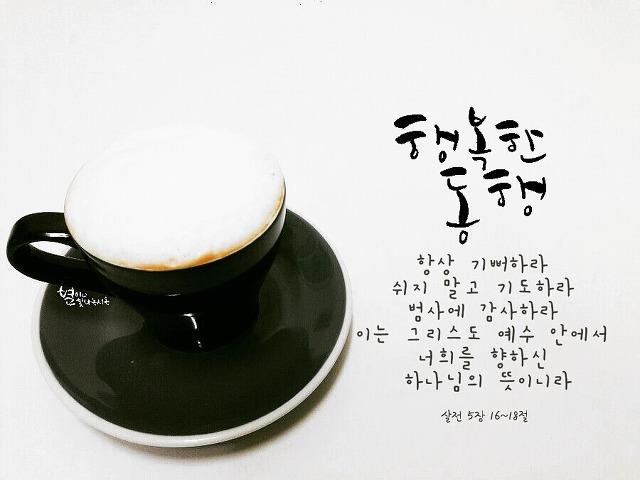 행복한
동행
항상 기뻐하라
쉬지 말고 기도하라
범사에 감사하라
이는 그리스도 예수 안에서
너희를 향하신
하나님의 뜻이니라
살전 5장 16~18절
별이
빛나는시간